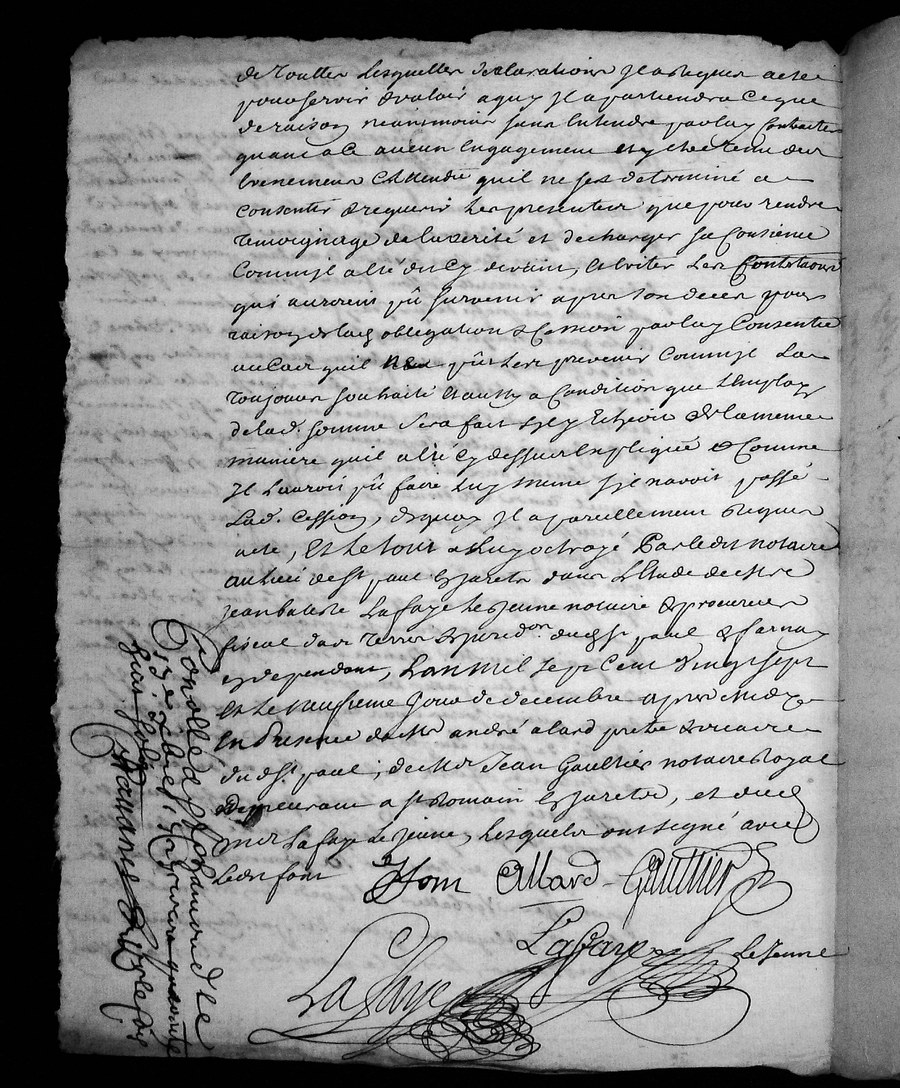 de touttes lesquelles declarations il a requis acte
pour servir & valoir a quy il apartiendra ce que
de raison neanmoins sans entendre par luy contracter
quant a ce aucun engagement ny estre tenu des
evenements attendu qu'il ne s'est determiné a
consentir & requerir les presentes que pour rendre
temoignage de la verité et decharger sa consience
comm'il a été dit cy devant, et eviter les contestaons
qui auroient pû survenir apres son deces pour
raison de lad obligation & cession par luy consentie
au cas qu'il pût les prevenir comm'il l'a
toujours souhaité et aussy a condition que l'employ
de lad. somme sera fait de la meme
maniere qu'il a été cy dessus expliqué & comme
il l'auroit pû faire luy meme s'il n'avoit passé
lad. cession, de quoy il a pareillement requis
acte, et le tout a luy octroyé par ledit notaire
au lieu de st paul en jarets dans l'etude de Mre
jean batiste Lafaye le jeune notaire & procureur
fiscal des terres & juridon. dud st paul & farnay
en dependant, l'an mil sept cent vingt sept
et le neufvieme jour de decembre apres midy
en presence de Mr andré alard pretre & vicaire
du d st. paul, de Mr Jean Gaultier notaire Royal
demeurant a st Romain en jarets, et dud
mer Lafaye le jeune, lesquels ont signé avec
led sr font
font Allard Gaultier
Lafaye le jeune
Lafaye
Conollé a st chamond le